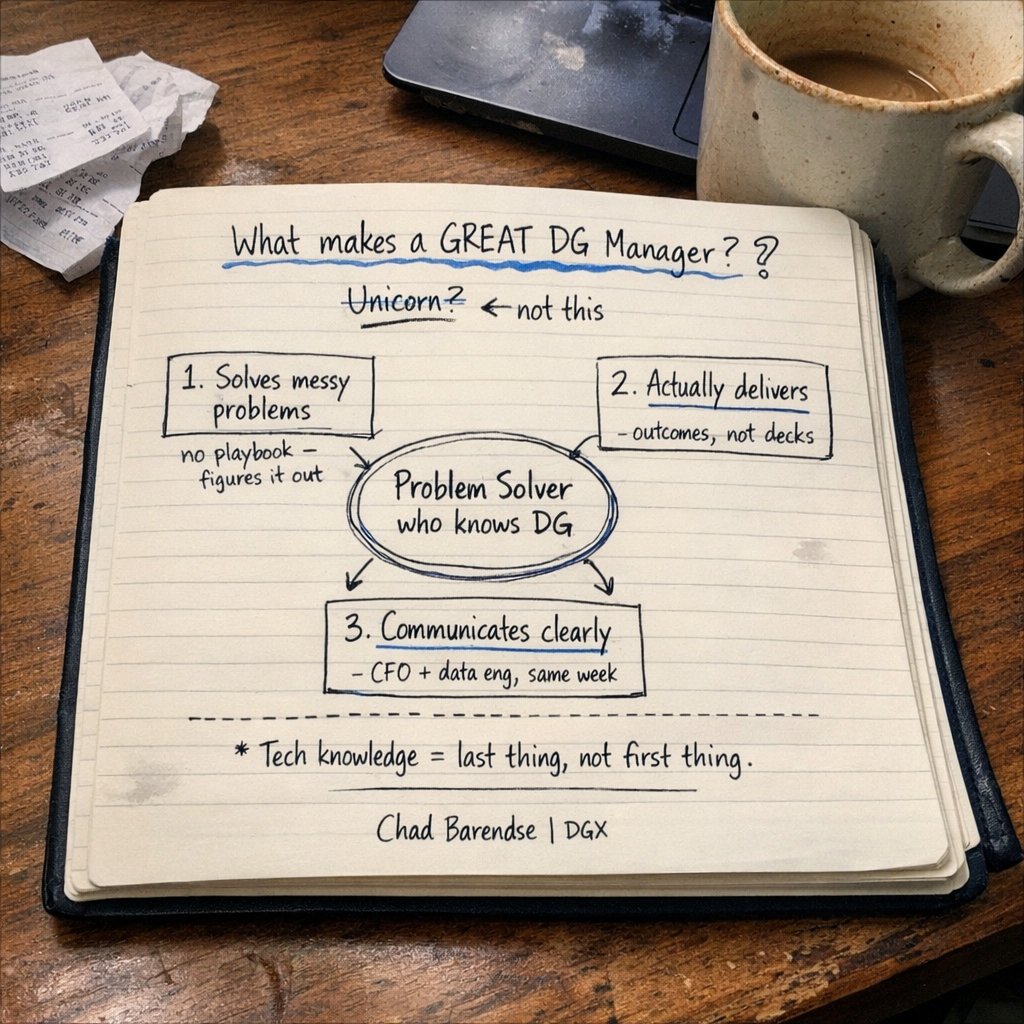 What makes a GREAT DG Manager? ?
Unicorn? ← not this
1. Solves messy
problems
no playbook –
figures it out
2. Actually delivers
– outcomes, not decks
Problem Solver
who knows DG
3. Communicates clearly
– CFO + data eng, same week
* Tech knowledge = last thing, not first thing.
Chad Barendse | DGX